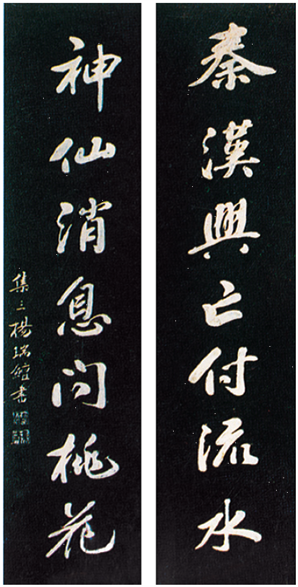 秦漢興亡付流水
神仙消息問桃花
集之楊瑞鱣書